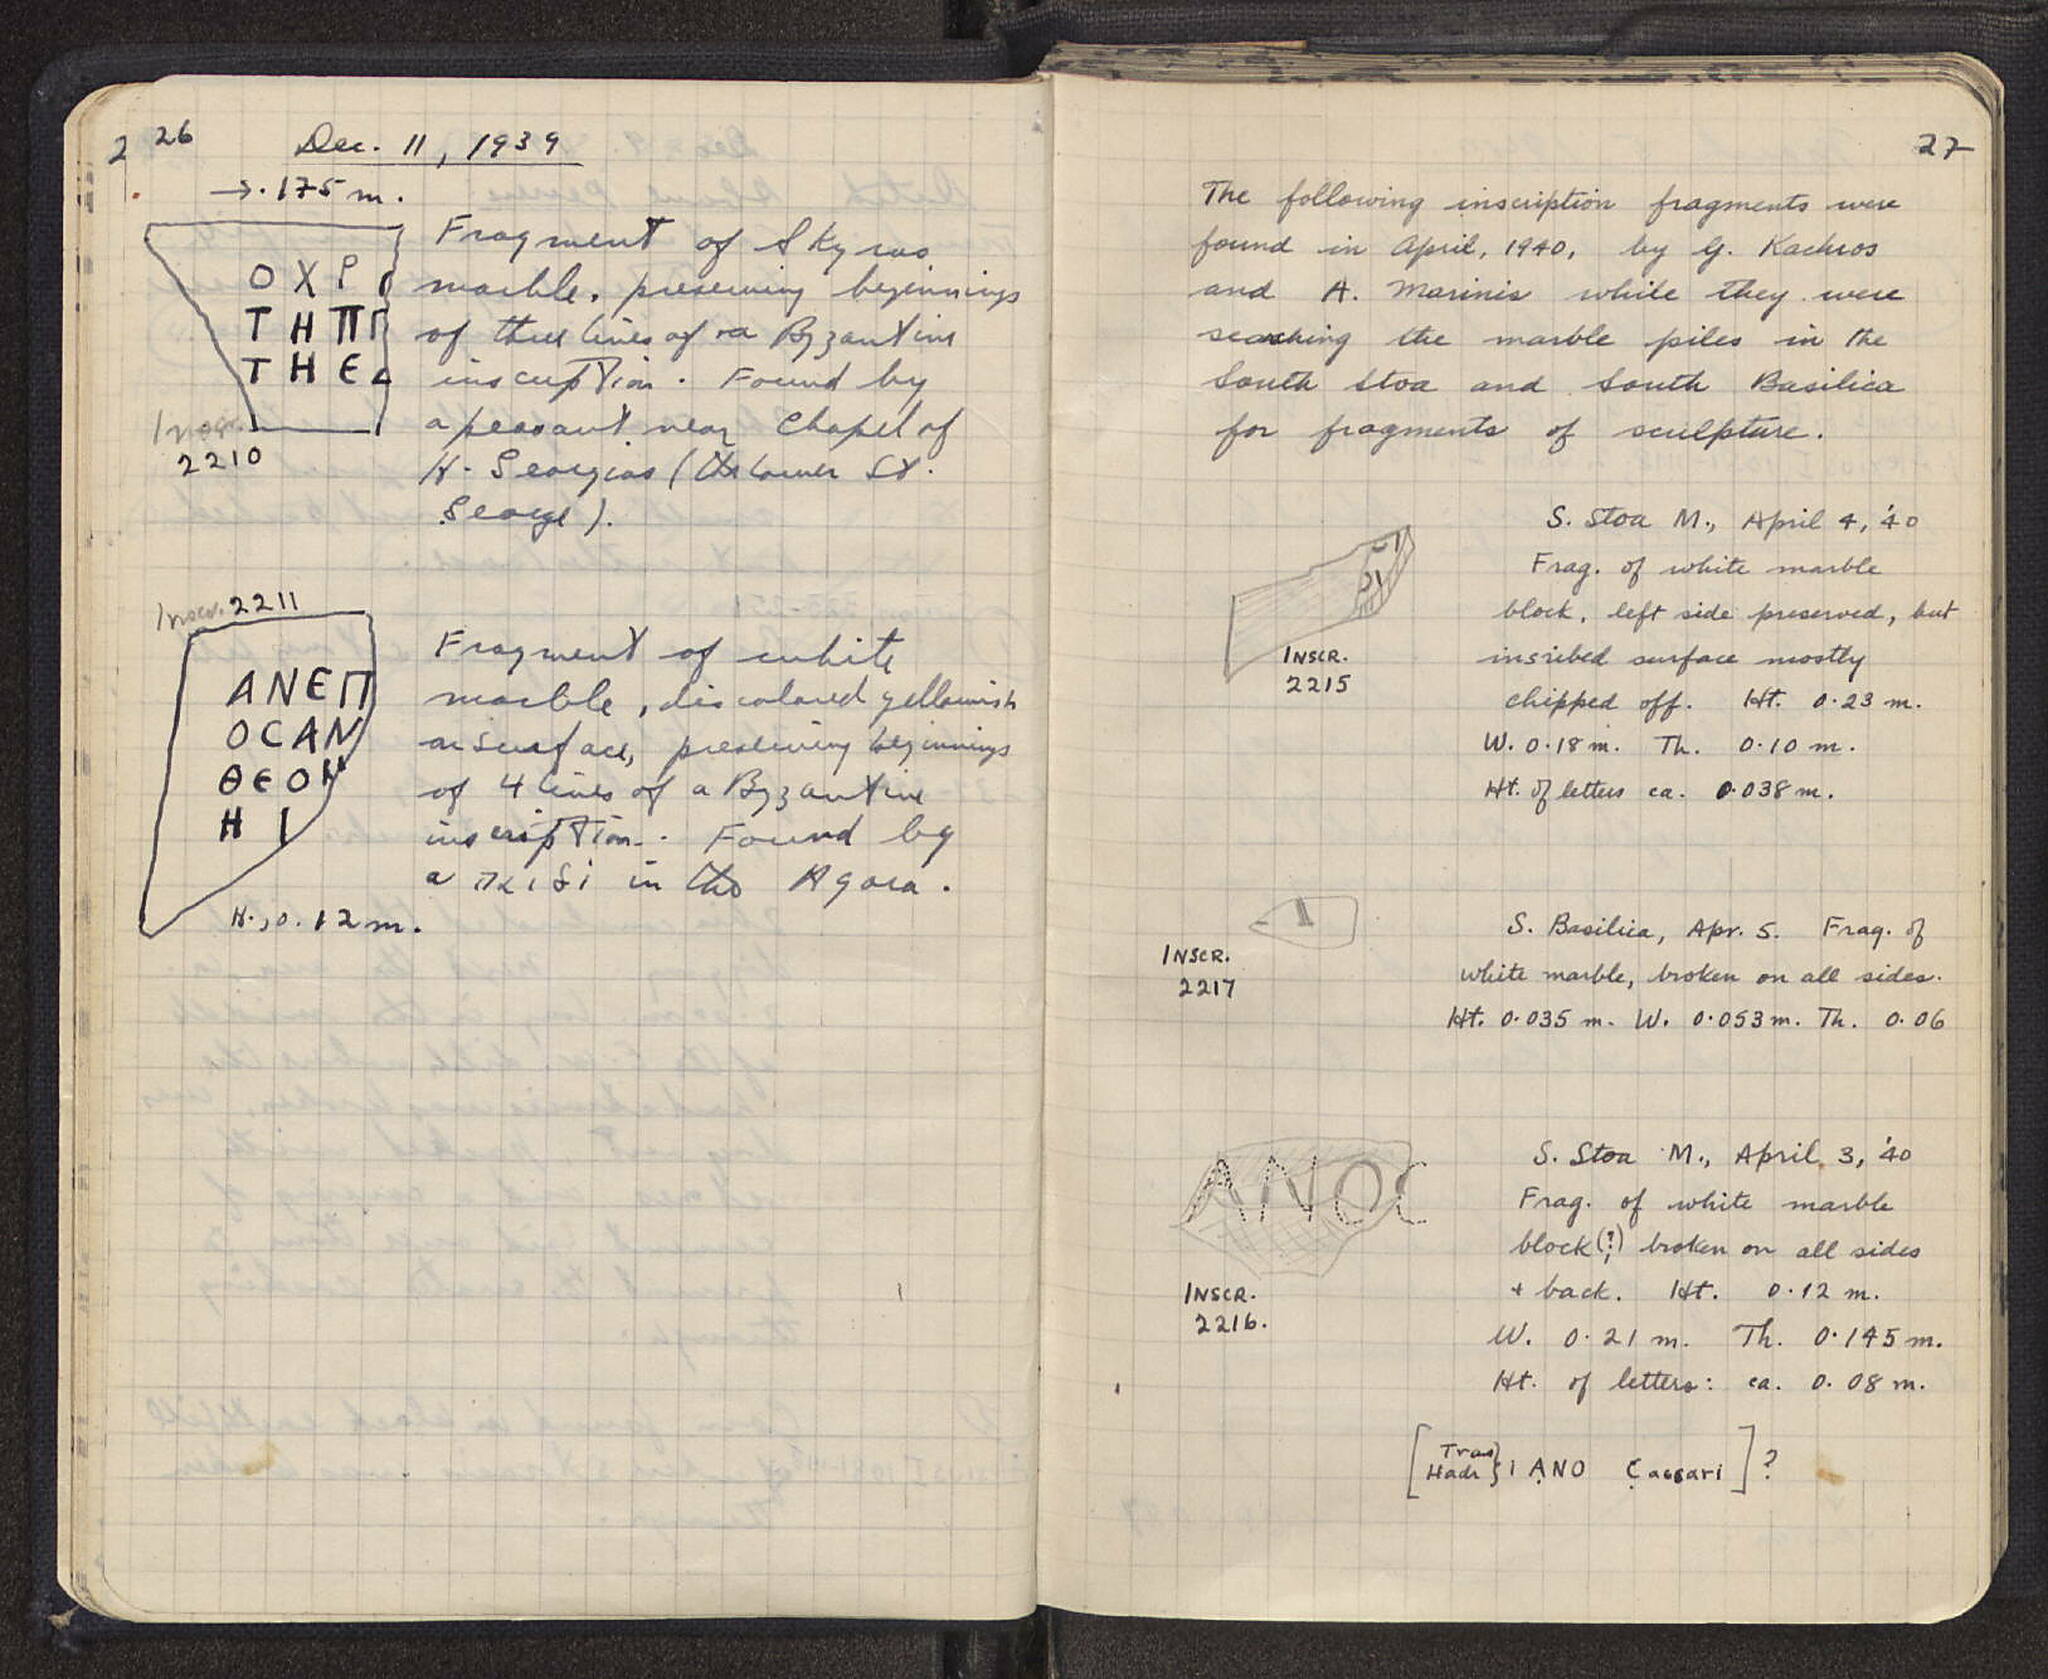 26
Dec. 11, 1939
→ .175 m.
Ο Χ Ρ Ι
Τ Η Π Γ
Τ Η Ε
Inscr.
2210
Fragment of Skyros
marble, preserving beginnings
of three lines of a Byzantine
inscription. Found by
a peasant near Chapel of
H. Georgios (the lower St.
George).
Inscr. 2211
ΑΝΕΠ
ΟCΑΝ
ΘΕΟΝ
Η Ι
H., 0.12 m.
Fragment of white
marble, discolored yellowish
on surface, preserving beginnings
of 4 lines of a Byzantine
inscription. Found by
a παιδί in the Agora.
27
The following inscription fragments were
found in April, 1940, by G. Kachros
and A. Marinis while they were
searching the marble piles in the
South Stoa and South Basilica
for fragments of sculpture.
INSCR.
2215
S. Stoa M., April 4, '40
Frag. of white marble
block, left side preserved, but
inscribed surface mostly
chipped off. Ht. 0.23 m.
W. 0.18 m. Th. 0.10 m.
Ht. of letters ca. 0.038 m.
I
INSCR.
2217
S. Basilica, Apr. 5. Frag. of
white marble, broken on all sides.
Ht. 0.035 m. W. 0.053 m. Th. 0.06
ANOC
INSCR.
2216.
S. Stoa M., April 3, '40
Frag. of white marble
block (?) broken on all sides
+ back. Ht. 0.12 m.
W. 0.21 m. Th. 0.145 m.
Ht. of letters: ca. 0.08 m.
[Tra
Hadr} i ANO Caesari]?